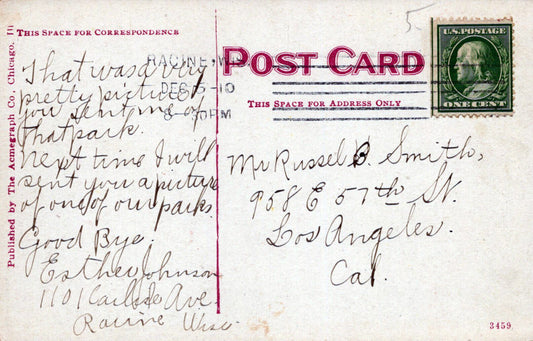 THIS SPACE FOR CORRESPONDENCE
That was a very
pretty picture of
you sent me of
that park.
Next time I will
sent you a picture
of one of our parks.
Good Bye.
Esther Johnson
1101 Carlisle Ave.
Racine Wisc
Published by The Acmegraph Co., Chicago, Ill
RACINE, WIS
DEC 5-10
8-PM
POST CARD
THIS SPACE FOR ADDRESS ONLY
5
U.S. POSTAGE
ONE CENT
Mr Russel B. Smith,
958 E 57th St.
Los Angeles.
Cal.
3459